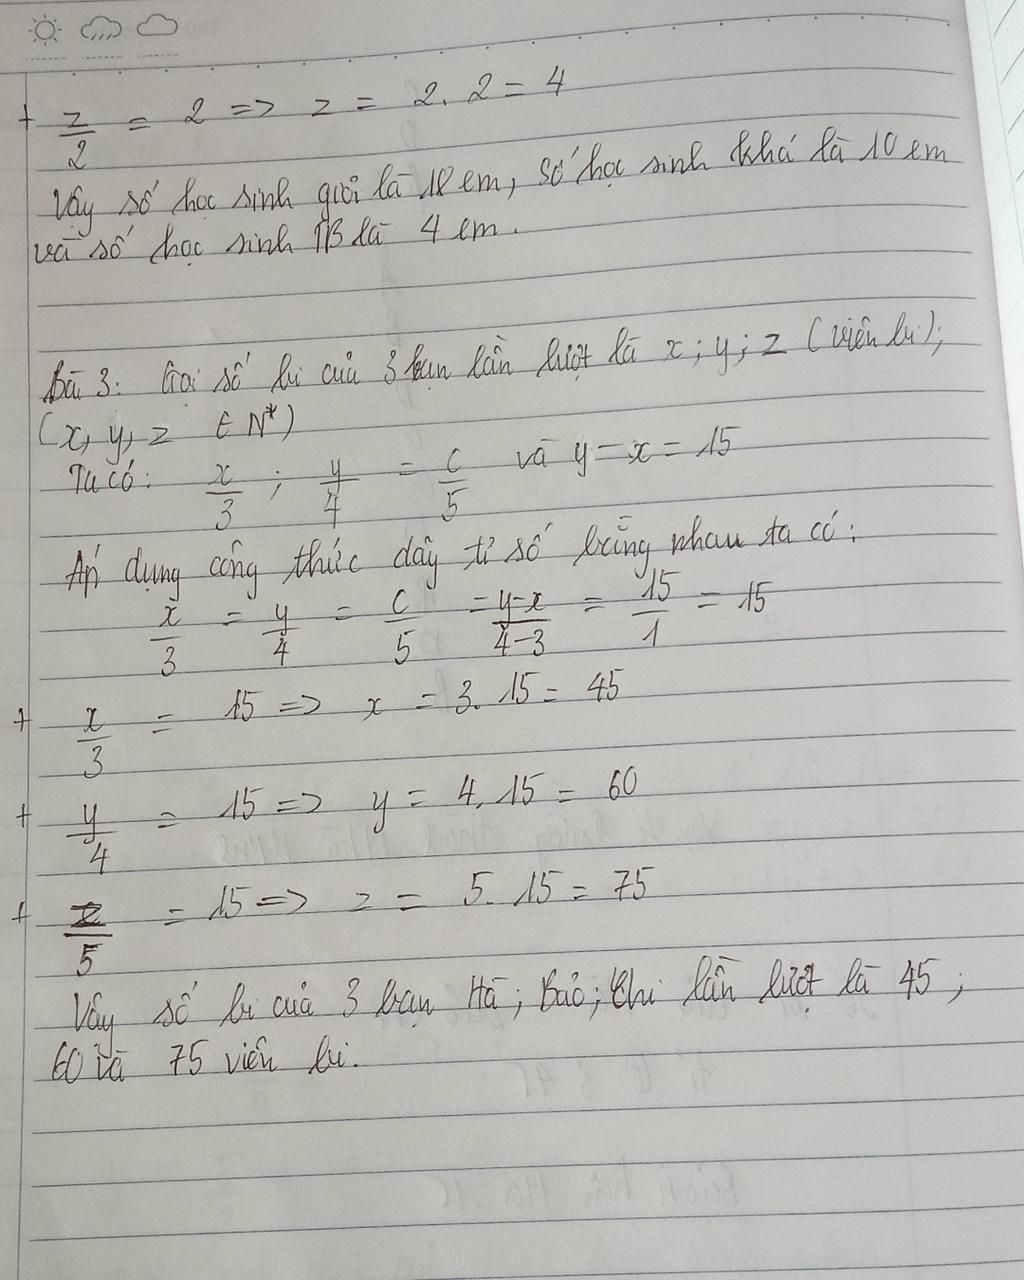 + z/2 = 2 => z = 2. 2 = 4
Vậy số học sinh giỏi là 18 em, số học sinh khá là 10 em
và số học sinh TB là 4 em.
Bài 3: Gọi số bi của 3 bạn lần lượt là x; y; z (viên bi);
(x, y, z ∈ N*)
Ta có: x/3 ; y/4 = c/5 và y - x = 15
Áp dụng công thức dãy tỉ số bằng nhau ta có:
x/3 = y/4 = c/5 = y-x/4-3 = 15/1 = 15
+ x/3 = 15 => x = 3. 15 = 45
+ y/4 = 15 => y = 4. 15 = 60
+ z/5 = 15 => z = 5. 15 = 75
Vậy số bi của 3 bạn Hà; Bảo; Chi lần lượt là 45;
60 và 75 viên bi.